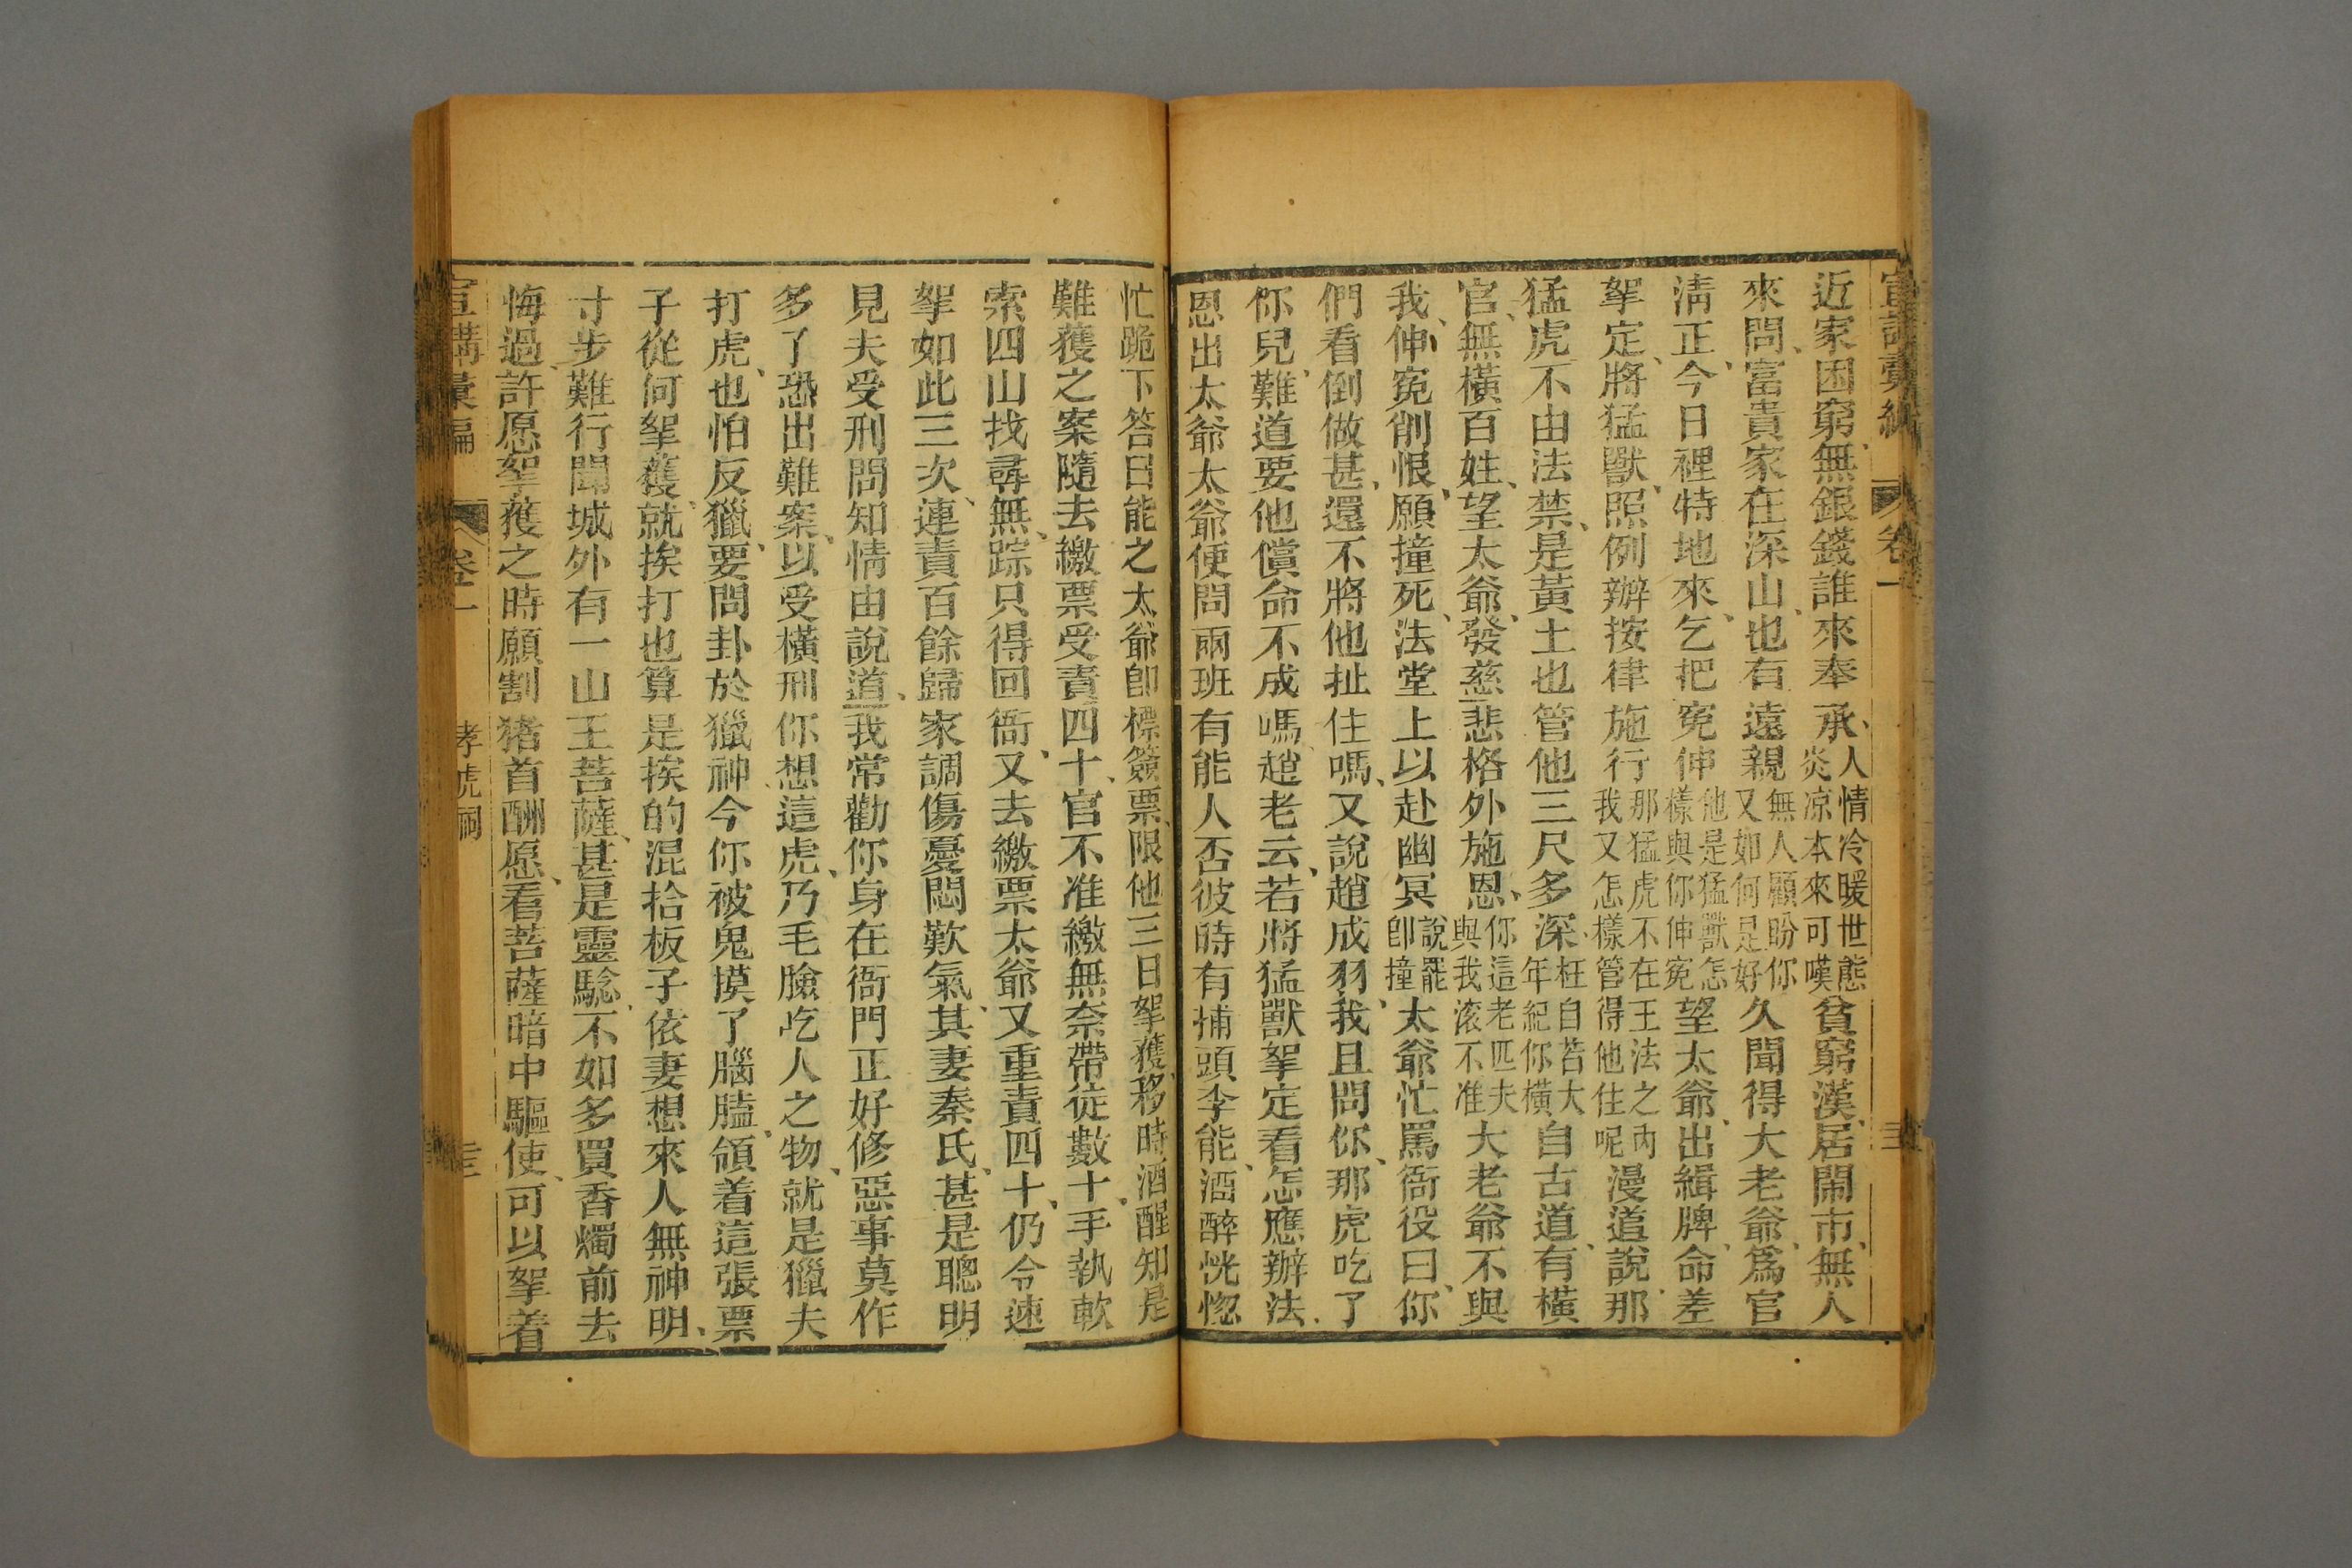 宣講彙編 卷一
近家困窮、無銀錢誰來奉承、人情冷暖世態炎凉本來可嘆貧窮漢、居閙市、無人
來問、富貴家在深山、也有遠親無人顧盼你又如何是好久聞得大老爺、爲官
淸正、今日裡特地來、乞把寃伸他是猛獸怎樣與你伸寃望太爺、出緝牌、命差
拏定、將猛獸、照例辦按律施行那猛虎不在王法之內我又怎樣管得他住呢漫道說、那
猛虎不由法禁、是黃土也管他三尺多深、枉自若大年紀你橫自古道、有橫
官、無橫百姓、望太爺、發慈悲格外施恩、你這老匹夫與我滚不准大老爺不與
我、伸寃削恨、願撞死、法堂上以赴幽冥說罷卽撞太爺忙罵衙役曰、你
們看倒做甚、還不將他扯住嗎、又說趙成羽、我且問你、那虎吃了
你兒、難道要他償命不成嗎趙老云、若將猛獸拏定看怎應辦法
恩出太爺太爺便問兩班有能人否彼時有捕頭李能、酒醉恍惚
忙跪下答曰能之太爺卽標簽票、限他三日拏獲、移時酒醒知是
難獲之案隨去繳票受責四十、官不准繳無奈帶從數十、手執軟
索四山找尋無、踪只得回衙、又去繳票太爺又重責四十、仍令速
拏如此三次、連責百餘歸家調傷憂悶歎氣、其妻秦氏、甚是聰明
見夫受刑問知情由說道、我常勸你身在衙門正好修惡事莫作
多了恐出難案、以受橫刑你想這虎、乃毛臉吃人之物、就是獵夫
打虎、也怕反獵、要問卦於獵神、今你被鬼摸了腦膛、領着這張票
子從何拏獲、就挨打也算是挨的混拾板子依妻想來人無神明、
寸步難行聞城外有一山王菩薩、甚是靈騐、不如多買香燭前去
悔過、許愿拏獲之時願割猪首酬愿、看菩薩暗中驅使、可以拏着
宣講彙編 卷一 孝虎祠